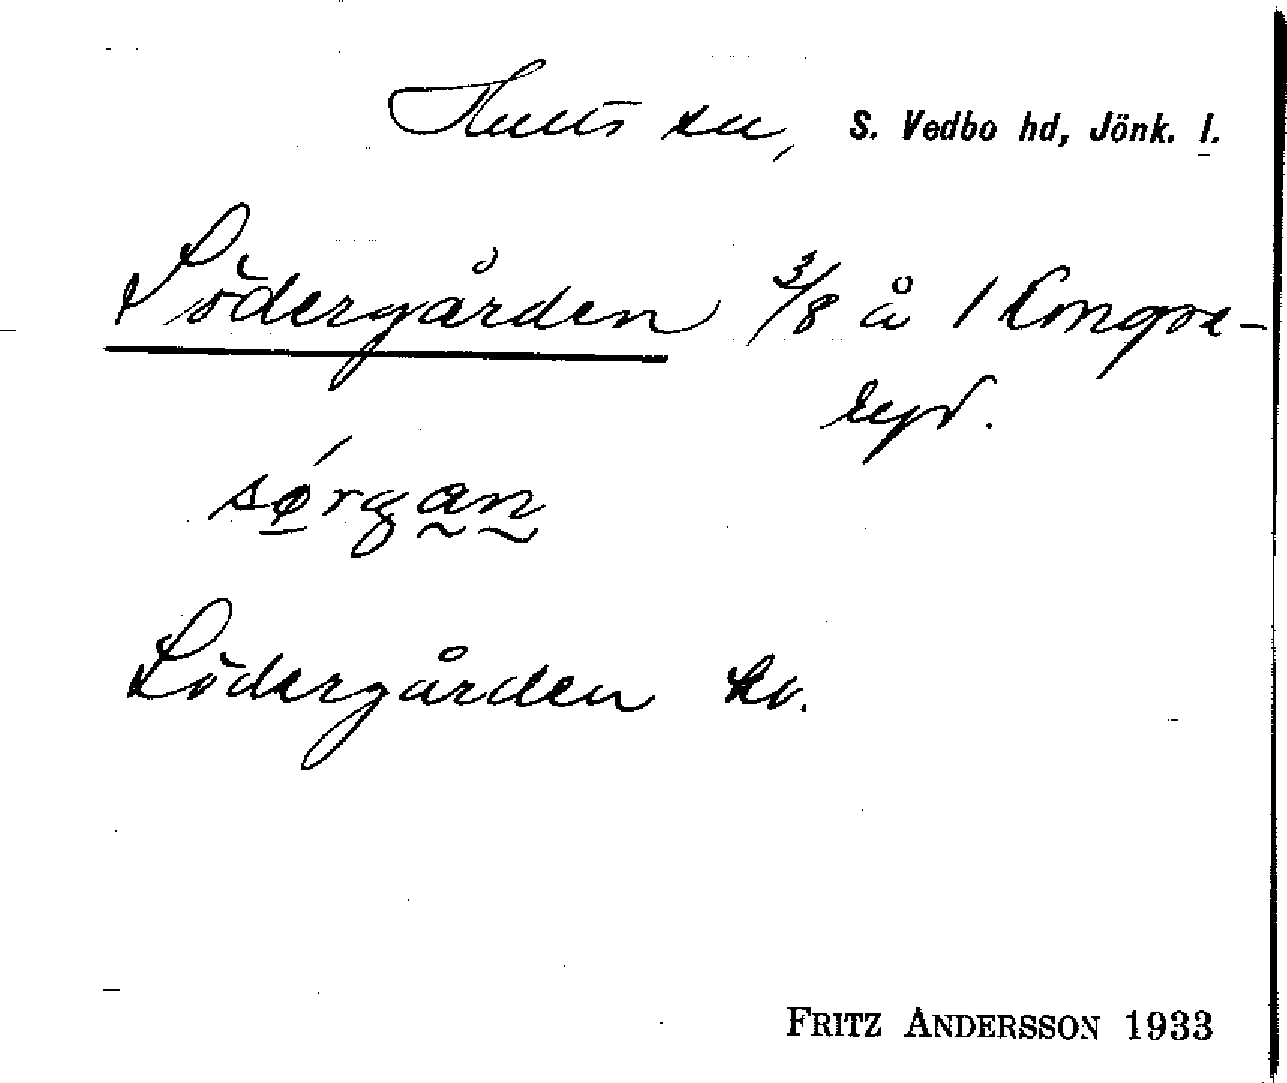 Hults sn, S. Vedbo hd, Jönk. l.
Södergården 3/8 å 1 Kongse-
ryd.
sørgan
Södergården kv.
FRITZ ANDERSSON 1933